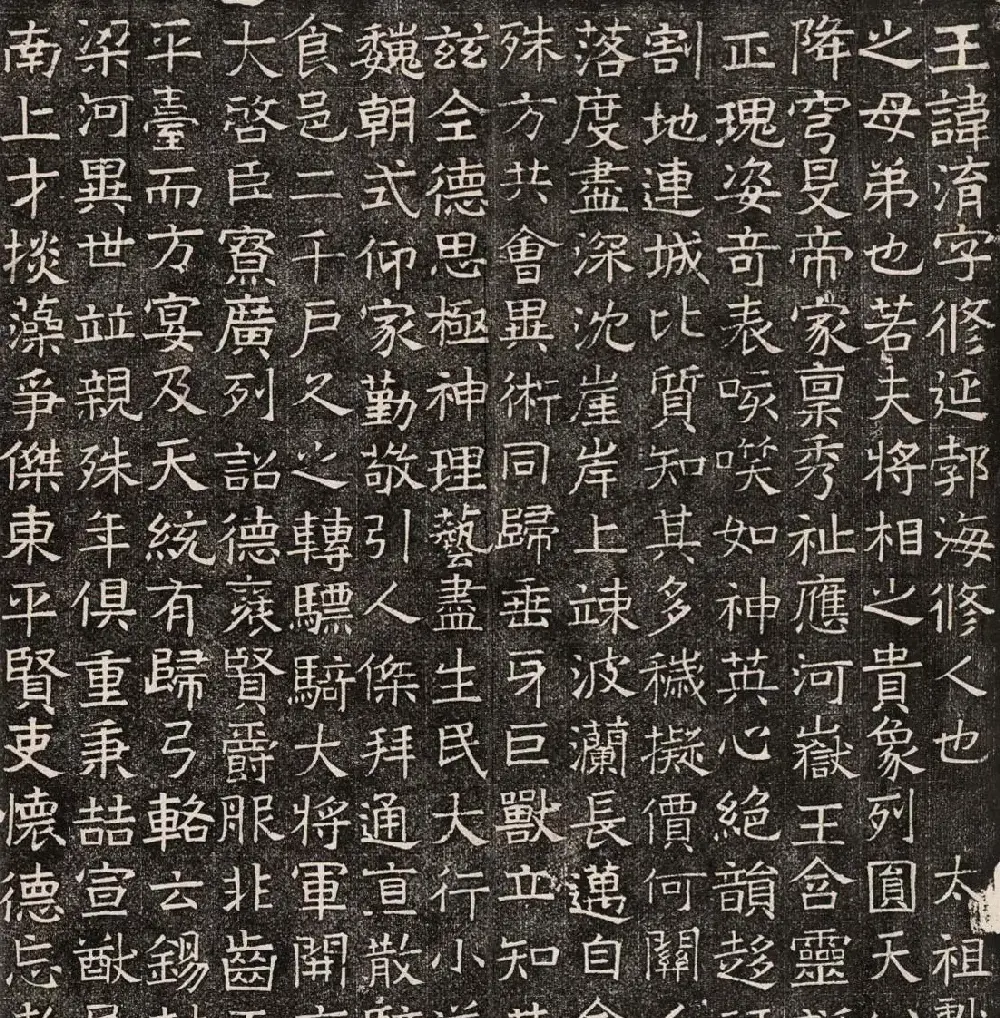 王諱淯字修延郭海修人也 太祖
之母弟也若夫將相之貴象列圓天
降穹旻帝家稟秀祉應河嶽王含靈
正瑰姿奇表咳唉如神英心絶韻趍
割地連城比質知其多穢擬價何關
落度盡深沈崖岸上竦波瀾長邁自
殊方共會異術同歸垂牙巨獸立知
兹全德思極神理藝盡生民大行小
魏朝式仰家勤敬引人傑拜通直散
食邑二千戶久之轉驃騎大將軍開
大啓臣寮廣列詔德襃賢爵服非齒
平臺而方宴及天統有歸弓輅云錫
梁河異世並親殊年俱重秉喆宣猷
南上才掞藻爭傑東平賢吏懷德忘